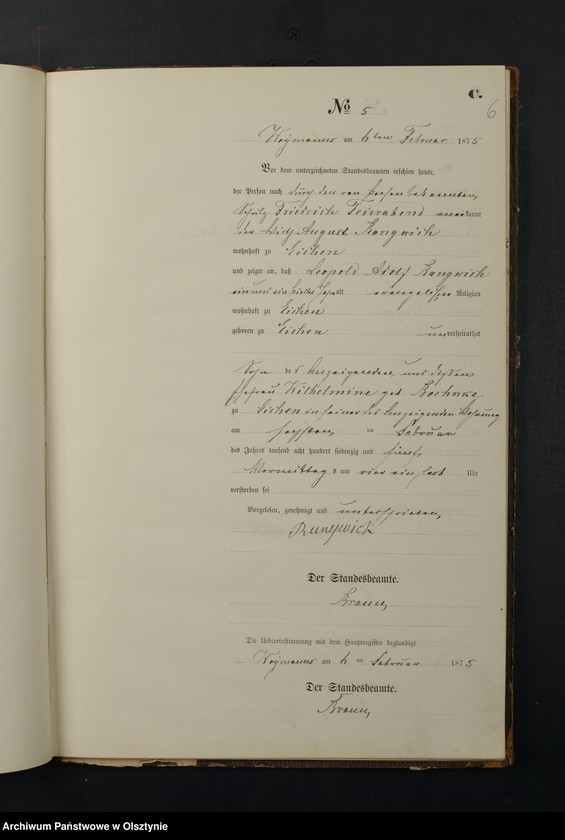 C.
6
No 5
am 6ten Februar 1875
Vor dem unterzeichneten Standesbeamten erschien heute,
der Person nach durch den von Person bekannten
Schulz Friedrich Feierabend anerkannt
der Wirth August Rangwich
wohnhaft zu Eichen
und zeigte an, daß Leopold Adolf Rangwich
alt evangelischer Religion
wohnhaft zu Eichen
geboren zu Eichen unverheirathet
Sohn des Anzeigenden und dessen
Ehefrau Wilhelmine geb Boehnke
zu Eichen in seiner des Anzeigenden Wohnung
am sechsten Februar
des Jahres tausend acht hundert siebenzig und fünf
Vormittags um vier ein halb Uhr
verstorben sei
Vorgelesen, genehmigt und unterschrieben
Rungwich
Der Standesbeamte.
Braun
Die Uebereinstimmung mit dem Hauptregister beglaubigt
am 6 ten Februar 1875
Der Standesbeamte.
Braun
Archiwum Państwowe w Olsztynie